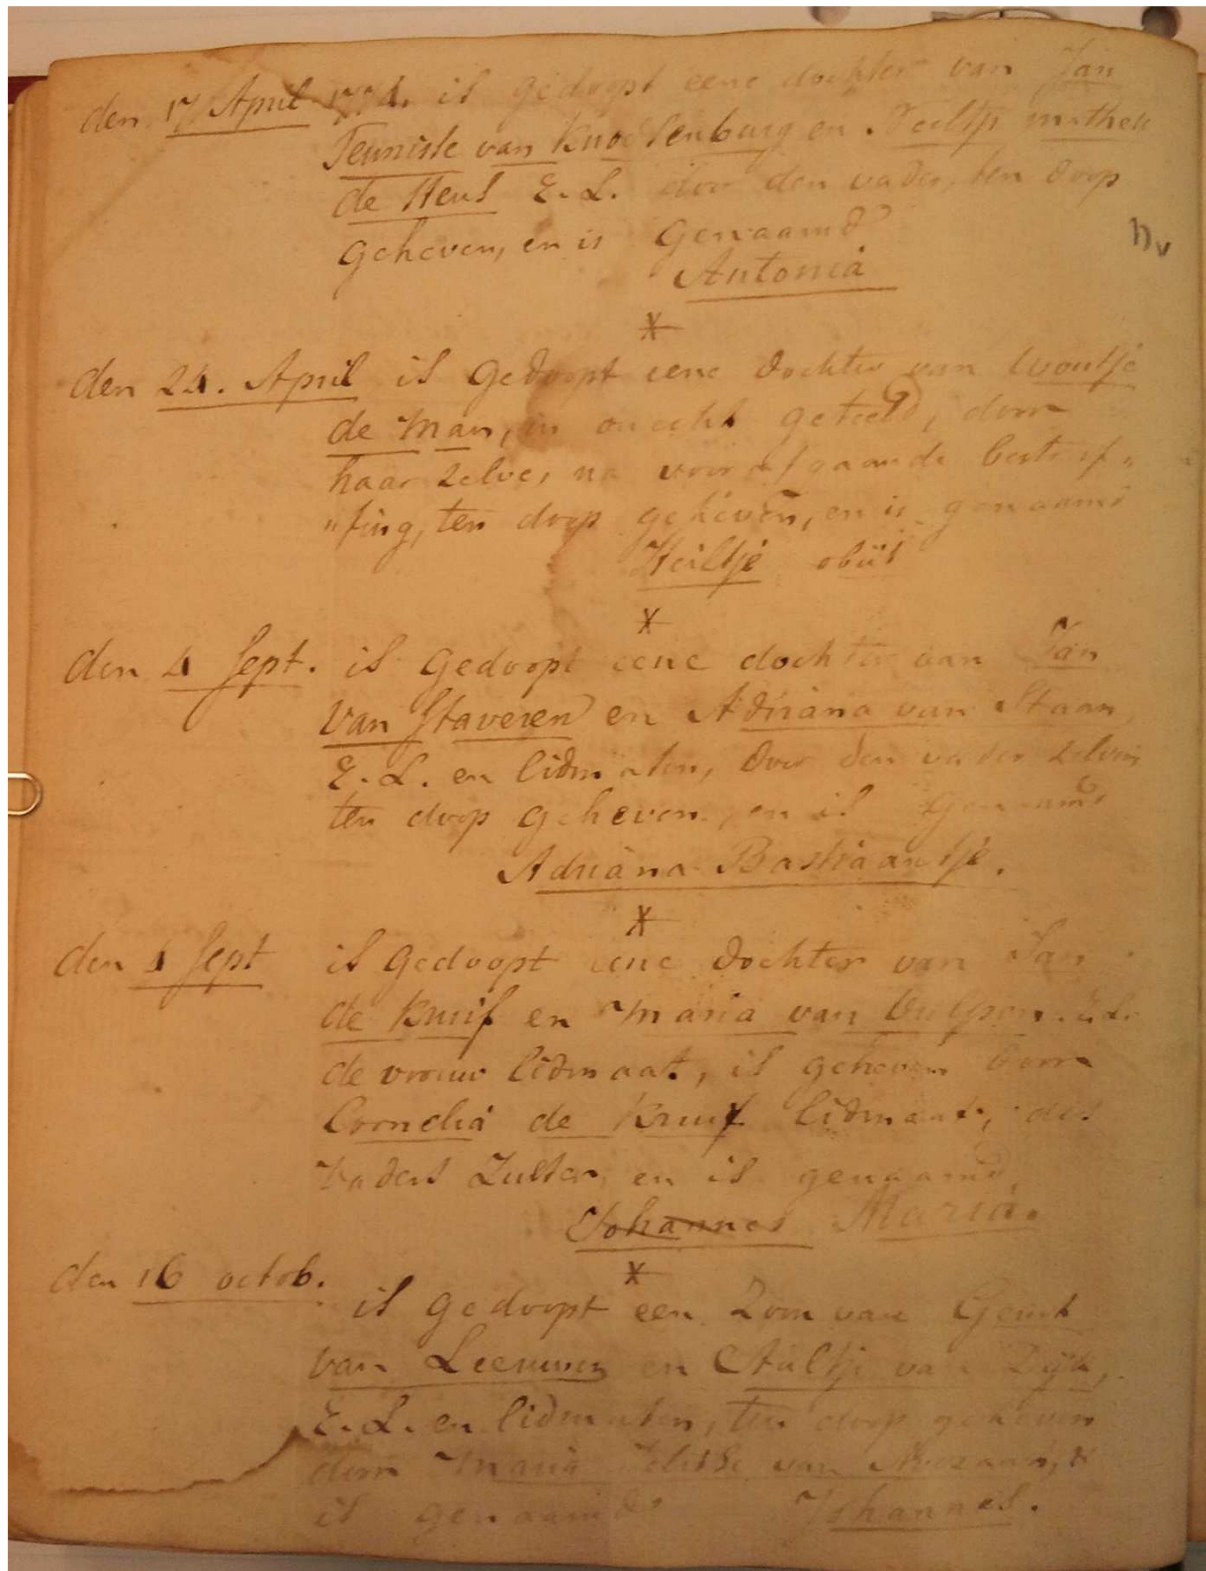 den 17 April 1774. is gedoopt eene dochter van Jan
Teunisse van Knodsenburg en Neeltje
de Heus E. L. door den vader, ten doop
geheven, en is Genaamd
Antonia
*
den 24. April is Gedoopt eene dochter van Woutje
de Man, in onecht geteeld, door
haar zelve, na voorafgaande bestraf„
„fing, ten doop geheven, en is genaamd
Heiltje obiit
*
den 4 Sept. is Gedoopt eene dochter van Jan
van Staveren en Adriana van Staan
E. L. en lidmaten, door den vader zelven
ten doop geheven, en is Genaamd
Adriana Bastiaantje.
*
den Sept is Gedoopt eene dochter van Jan
de Kruif en Maria van Vulpen. E. L.
de vrouw lidmaat, is geheven door
Cornelia de Kruif lidmaat, des
vaders Zuster, en is genaamd
Johannes Maria.
*
den 16 octob.
is gedoopt een Zoon van Gerrit
van Leeuwen en Aaltje van Dijk,
E. L. en lidmaten, ten doop geheven
door Maria van
is genaamd Johannes.